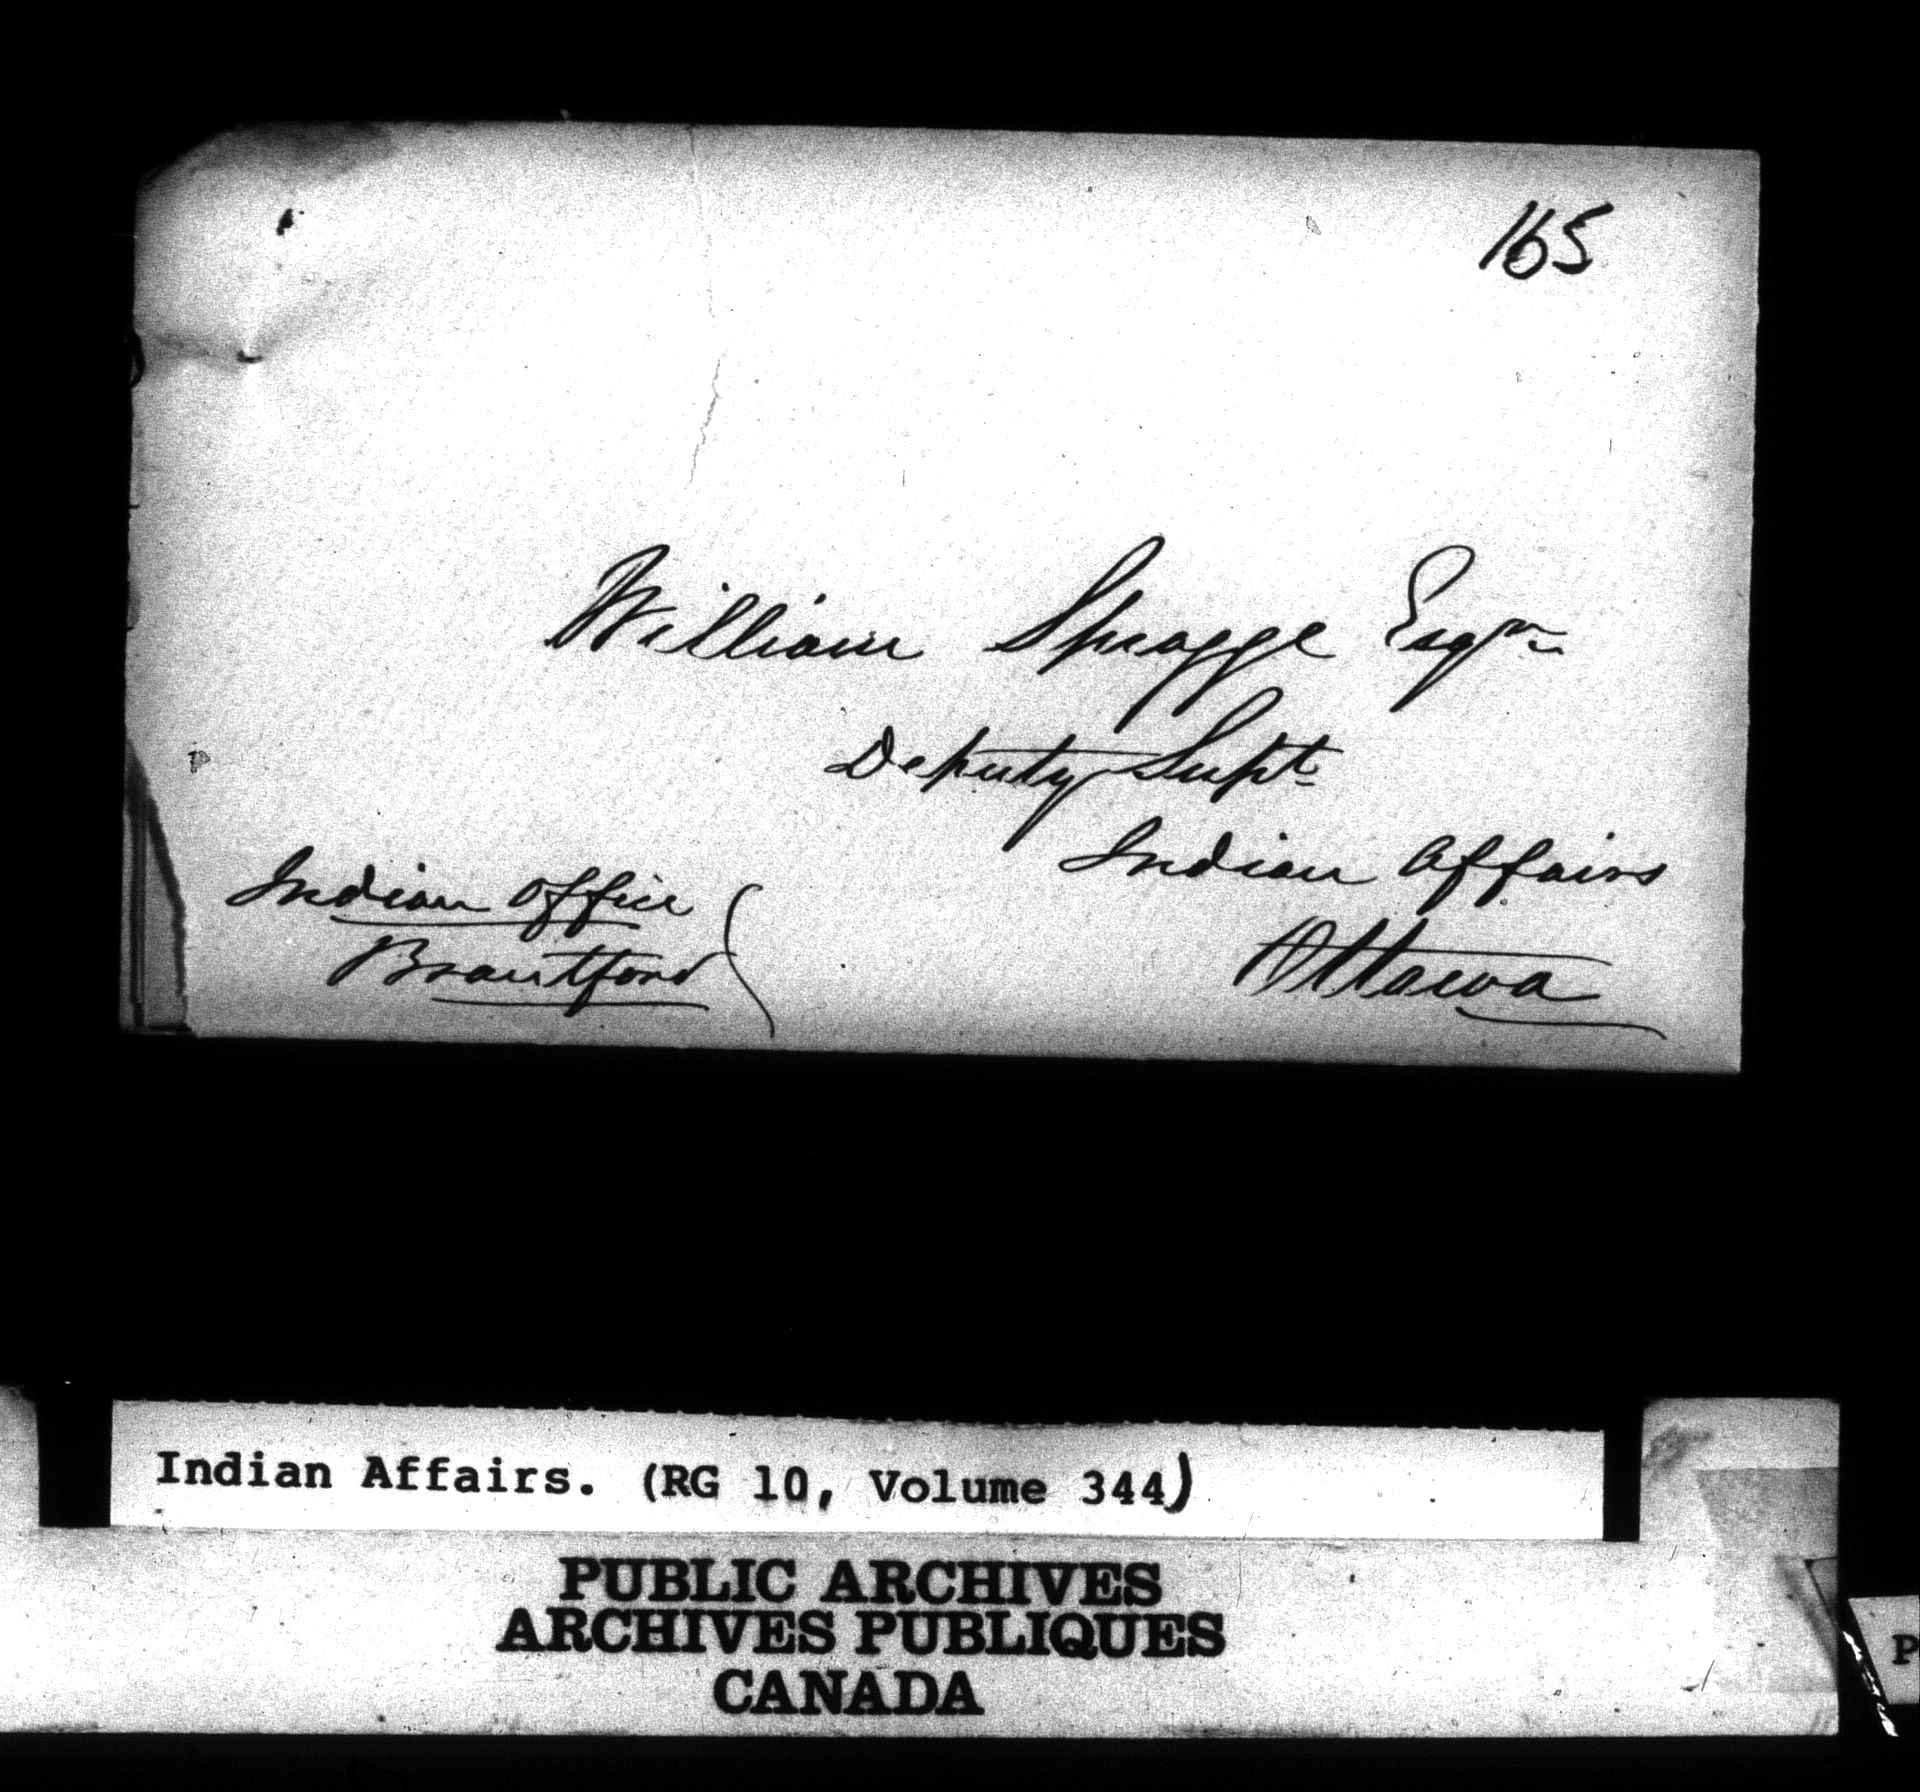 165
William Spragge Esqre
Deputy Supt
Indian Affairs
Ottawa
Indian Office
Brantford
Indian Affairs. (RG 10, Volume 344)
PUBLIC ARCHIVES
ARCHIVES PUBLIQUES
CANADA
P